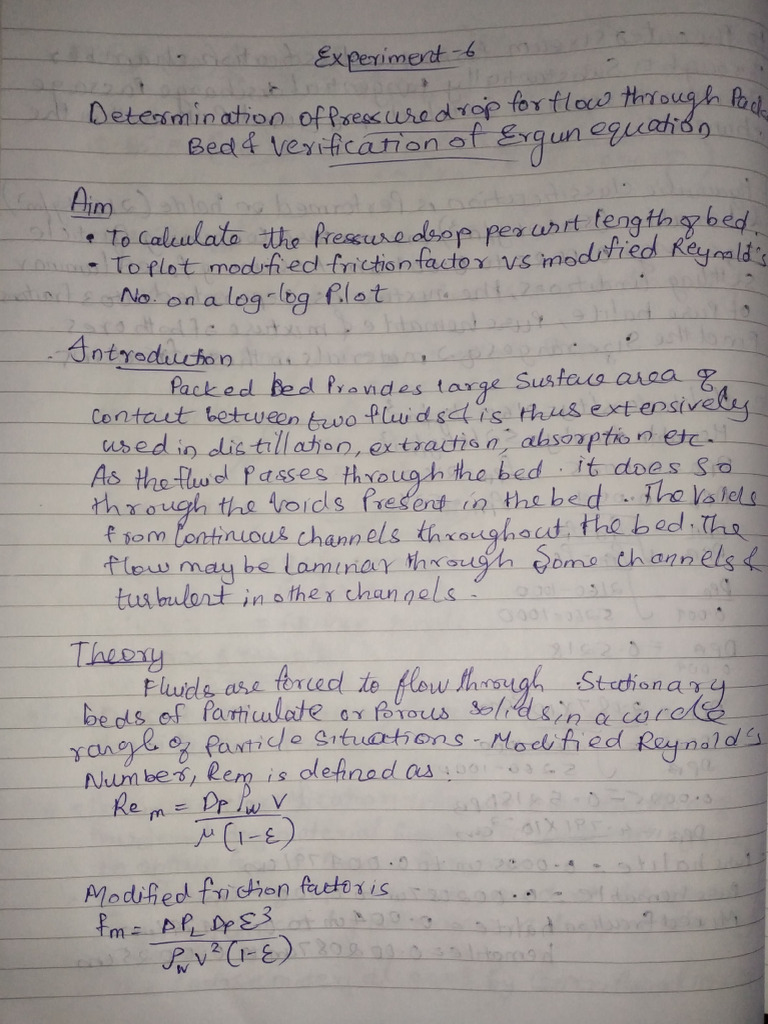 Experiment-6
Determination of Pressure drop for flow through Pack
Bed & Verification of Ergun equation
Aim
• To calculate the Pressure drop per unit length of bed.
• To plot modified friction factor vs modified Reynold's
No. on a log-log Plot
Introduction
Packed Bed Provides large Surface area of
contact between two fluids & is thus extensively
used in distillation, extraction, absorption etc.
As the fluid Passes through the bed. it does so
through the voids Present in the bed. The Voids
from Continuous channels throughout the bed. The
flow may be Laminar through Some channels &
turbulent in other channels.
Theory
Fluids are forced to flow through Stationary
beds of Particulate or Porous solids in a wide
range of Particle Situations - Modified Reynold's
Number, Rem is defined as:
Re m = Dp ρw V / μ (1-ε)
Modified friction factor is
fm = ΔPL Dp ε³ / ρw V² (1-ε)